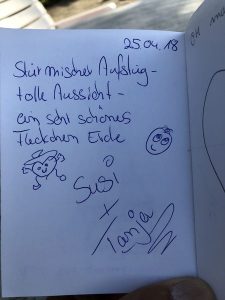 25.04.18
Stürmischer Aufstieg -
tolle Aussicht -
ein sehr schönes
Fleckchen Erde
Susi
+
Tanja